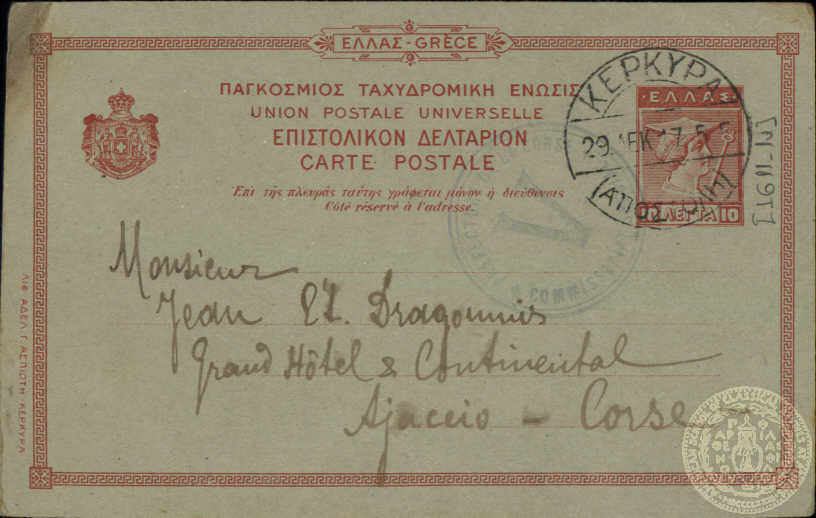 ΕΛΛΑΣ-GRÈCE
ΠΑΓΚΟΣΜΙΟΣ ΤΑΧΥΔΡΟΜΙΚΗ ΕΝΩΣΙΣ
UNION POSTALE UNIVERSELLE
ΕΠΙΣΤΟΛΙΚΟΝ ΔΕΛΤΑΡΙΟΝ
CARTE POSTALE
Ἐπὶ τῆς πλευρᾶς ταύτης γράφεται μόνον ἡ διεύθυνσις
Côté réservé à l'adresse.
ΚΕΡΚΥΡΑ
29. ΔΕΚ 17.5
ΕΛΛΑΣ
ΛΕΠΤΑ 10
A
Monsieur
Jean Et. Dragoumis
Grand Hôtel & Continental
Ajaccio - Corse
ΛΙΘ. ΑΔΕΛ. Γ. ΑΣΠΙΩΤΗ-ΚΕΡΚΥΡΑ